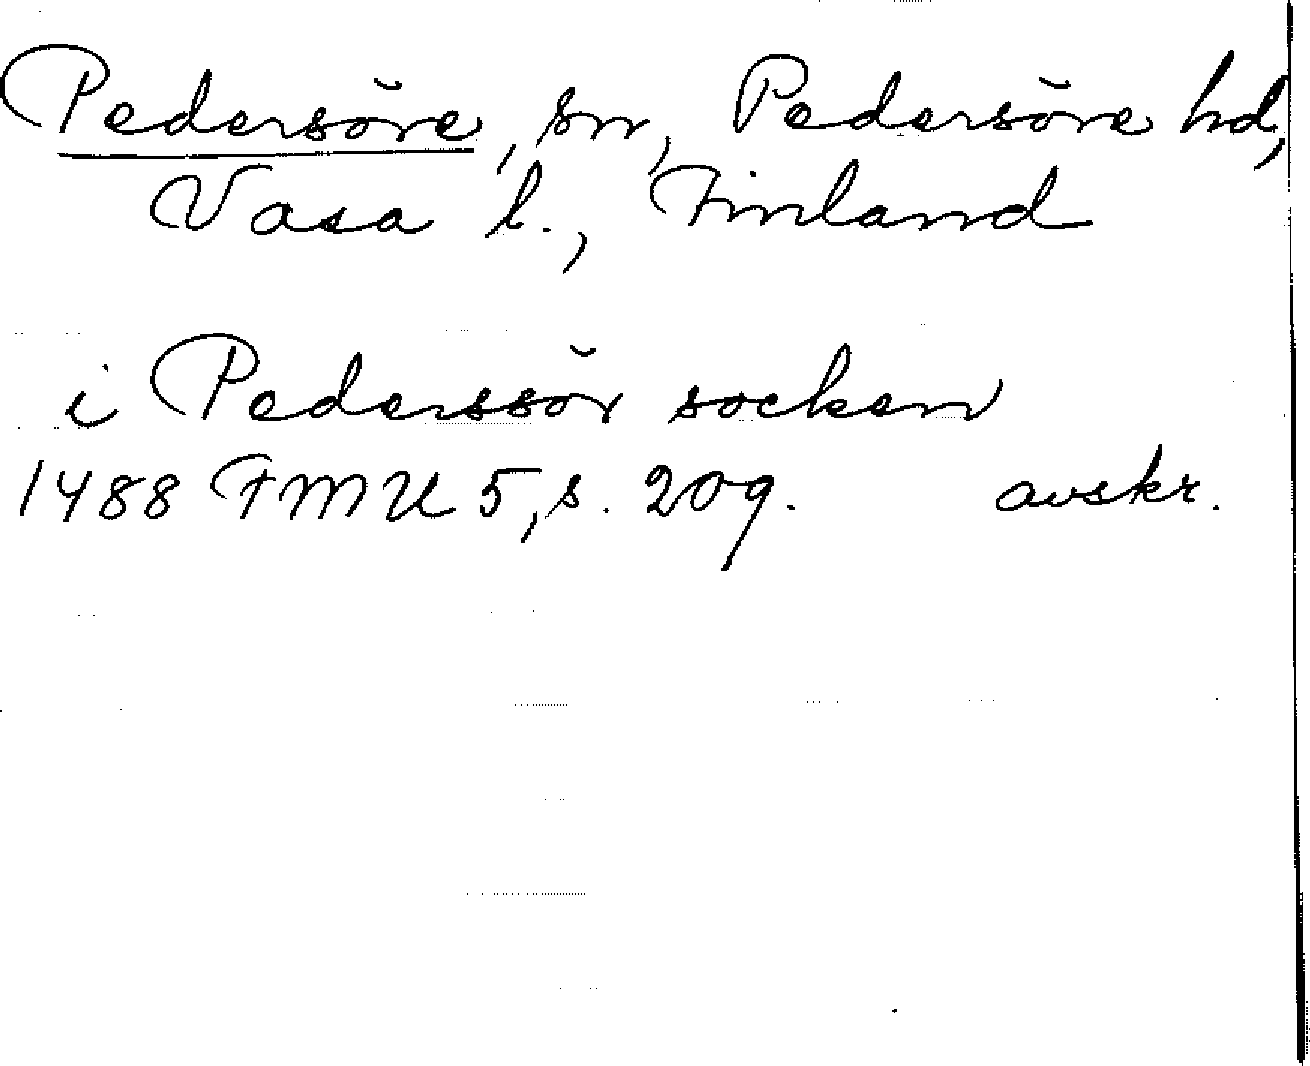 Pedersöre, sn, Pedersöre hd,
Vasa l., Finland
i Pederssör socken
1488 FMU 5, s. 209. avskr.